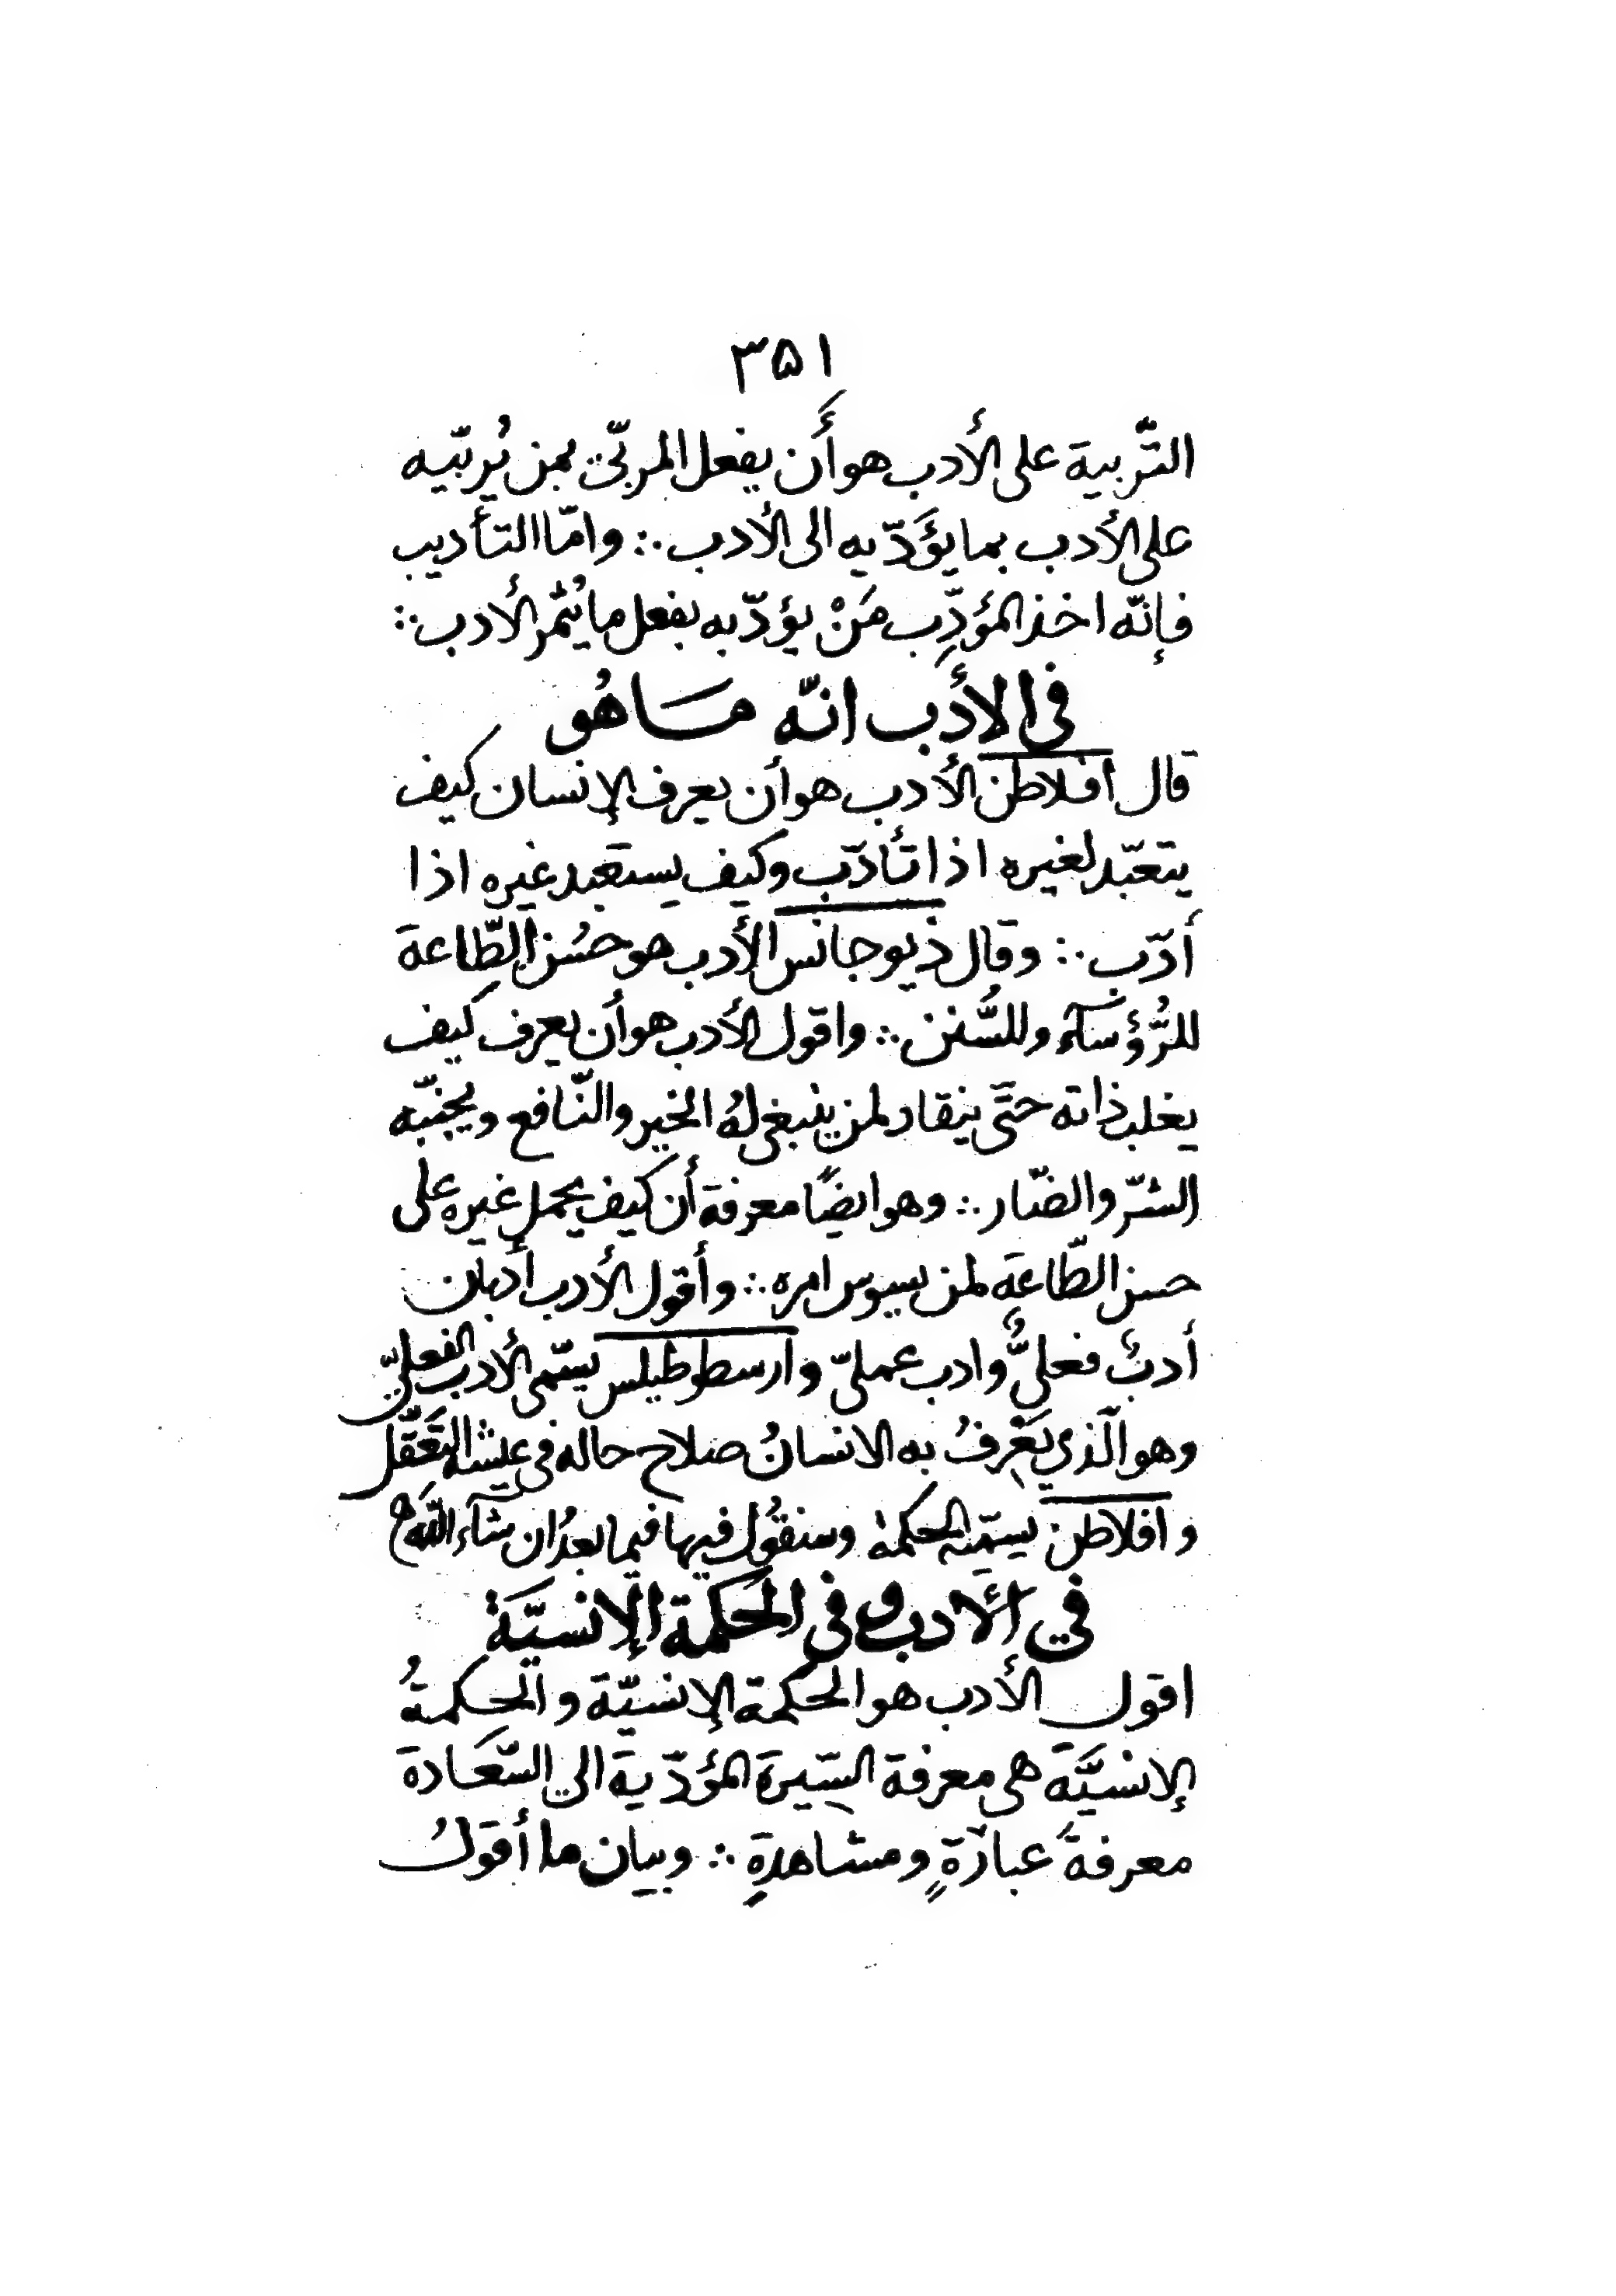 ٣٥١
التَّربية على الأدب هو أَن يفعل المربّي بمن يُربّيه
على الأدب بما يؤَدّيه الى الأدب ∴ وامّا التأديب
فإنّه اخذ المؤدِّب مَنْ يؤدّبه بفعل ما يُثمر الأدب ∴
في الأدب انّه مَا هُو
قال أفلاطن الأدب هو أن يعرف الإنسان كيف
يتعبّد لغيره اذا تأدّب وكيف يستعبد غيره اذا
أدّب ∴ وقال ذيوجانس الأدب هو حسُن الطّاعة
للرُّؤسآء وللسُّنن ∴ واقول الأدب هو أن يعرف كيف
يغلب ذاته حتّى ينقاد لمن ينبغي لهُ الخير والنّافع ويجنّبه
الشرّ والضّار ∴ وهو ايضًا معرفة أن كيف يحمل غيره على
حسن الطّاعة لمن يسوس امره ∴ وأقول الأدب أدبان
أدبٌ فعليٌّ وادب عمليّ وارسطوطيلس يسّمى الأدب الفعليّ
وهو الّذي يَعْرِفُ به الانسانُ صلاح حاله في عيشه التَعَقّل
وافلاطن يسمّيه الحكمة وسنقُول فيها فيما بعدُ ان شآء اللّه
في الأدب وفي الحكمة الإنسيّة
اقول الأدب هو الحكمة الإنسيّة والحكمةُ
الإنسيَّة هي معرفة السّيرة المؤدّية الى السّعَادة
معرفةَ عبارةٍ ومشاهدةٍ ∴ وبيان ما أقولُ